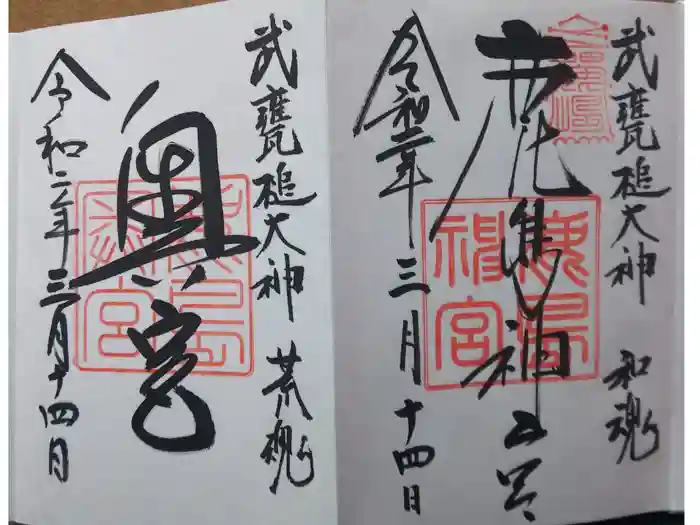 武甕槌大神 和魂
鹿島神宮
令和二年 三月十四日
武甕槌大神 荒魂
奥宮
令和二年 三月十四日
鹿島神宮